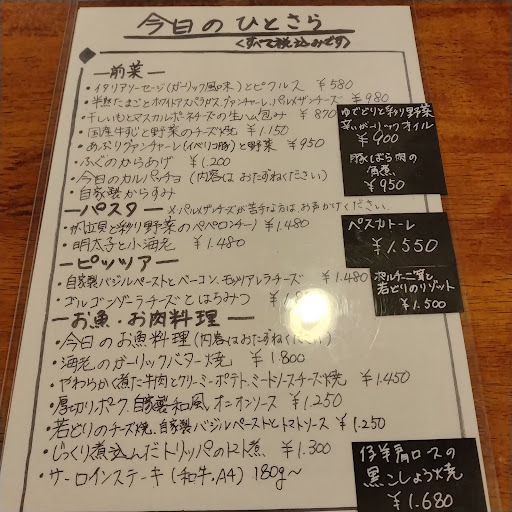 今日のひとさら
<すべて税込みです>
―前菜―
・イタリアソーセージ(ガーリック風味)とピクルス ¥580
・半熟たまごとホワイトアスパラガス、グァンチャーレ、パルメザンチーズ ¥980
・干しいもとマスカルポーネチーズの生ハム包み ¥870
・国産牛すじと野菜のチーズ焼 ¥1.150
・あぶりグァンチャーレ(イベリコ豚)と野菜 ¥950
・ふぐのからあげ ¥1.200
・今日のカルパッチョ(内容はおたずねください)
・自家製からすみ
ゆでどりと彩り野菜
辛いガーリックオイル
¥900
豚ばら肉の
角煮
¥950
―パスタ― ※パルメザンチーズが苦手な方は、お声がけください。
・帆立貝と彩り野菜のペペロンチーノ ¥1.480
・明太子と小海老 ¥1.480
ペスカトーレ
¥1.550
―ピッツァ―
・自家製バジルペーストとベーコン、モッツァレラチーズ ¥1.480
・ゴルゴンゾーラチーズとはちみつ
ポルチーニ茸と
若どりのリゾット
¥1.500
―お魚・お肉料理―
・今日のお魚料理(内容はおたずねください)
・海老のガーリックバター焼 ¥1.800
・やわらかく煮た牛肉とクリーミーポテト、ミートソースチーズ焼 ¥1.450
・厚切りポーク、自家製和風オニオンソース ¥1.250
・若どりのチーズ焼、自家製バジルペーストとトマトソース ¥1.250
・じっくり煮込んだトリッパのトマト煮 ¥1.300
・サーロインステーキ(和牛.A4) 180g～
仔羊肩ロースの
黒こしょう焼
¥1.680